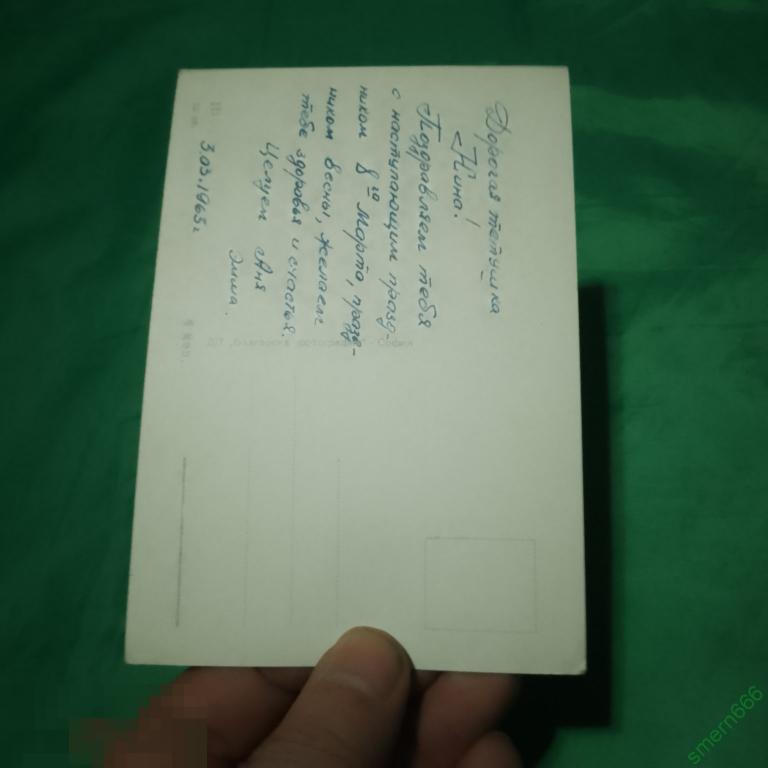 Дорогая тетушка
Нина!
Поздравляем тебя
с наступающим празд-
ником 8го Марта, празд-
ником весны, желаем
тебе здоровья и счастья.
Целуем Аня
Эмма.
3.03.1965г.
фотография" - София
smern666